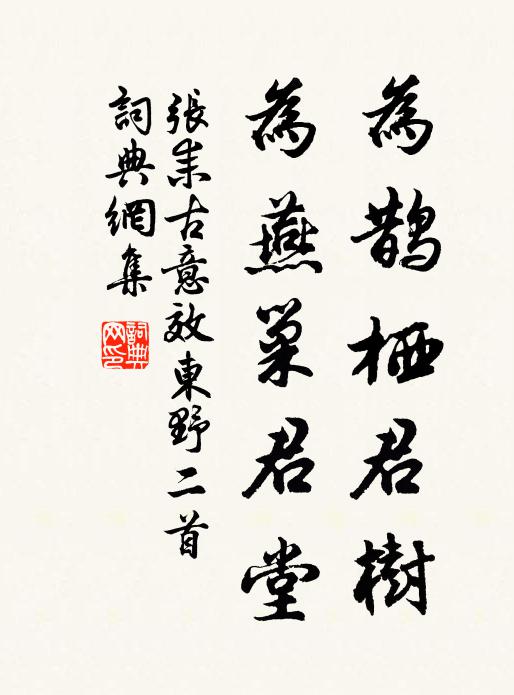 為鵲栖君樹
為燕巢君堂
張耒古意效東野二首
詞典網集
詞典網印